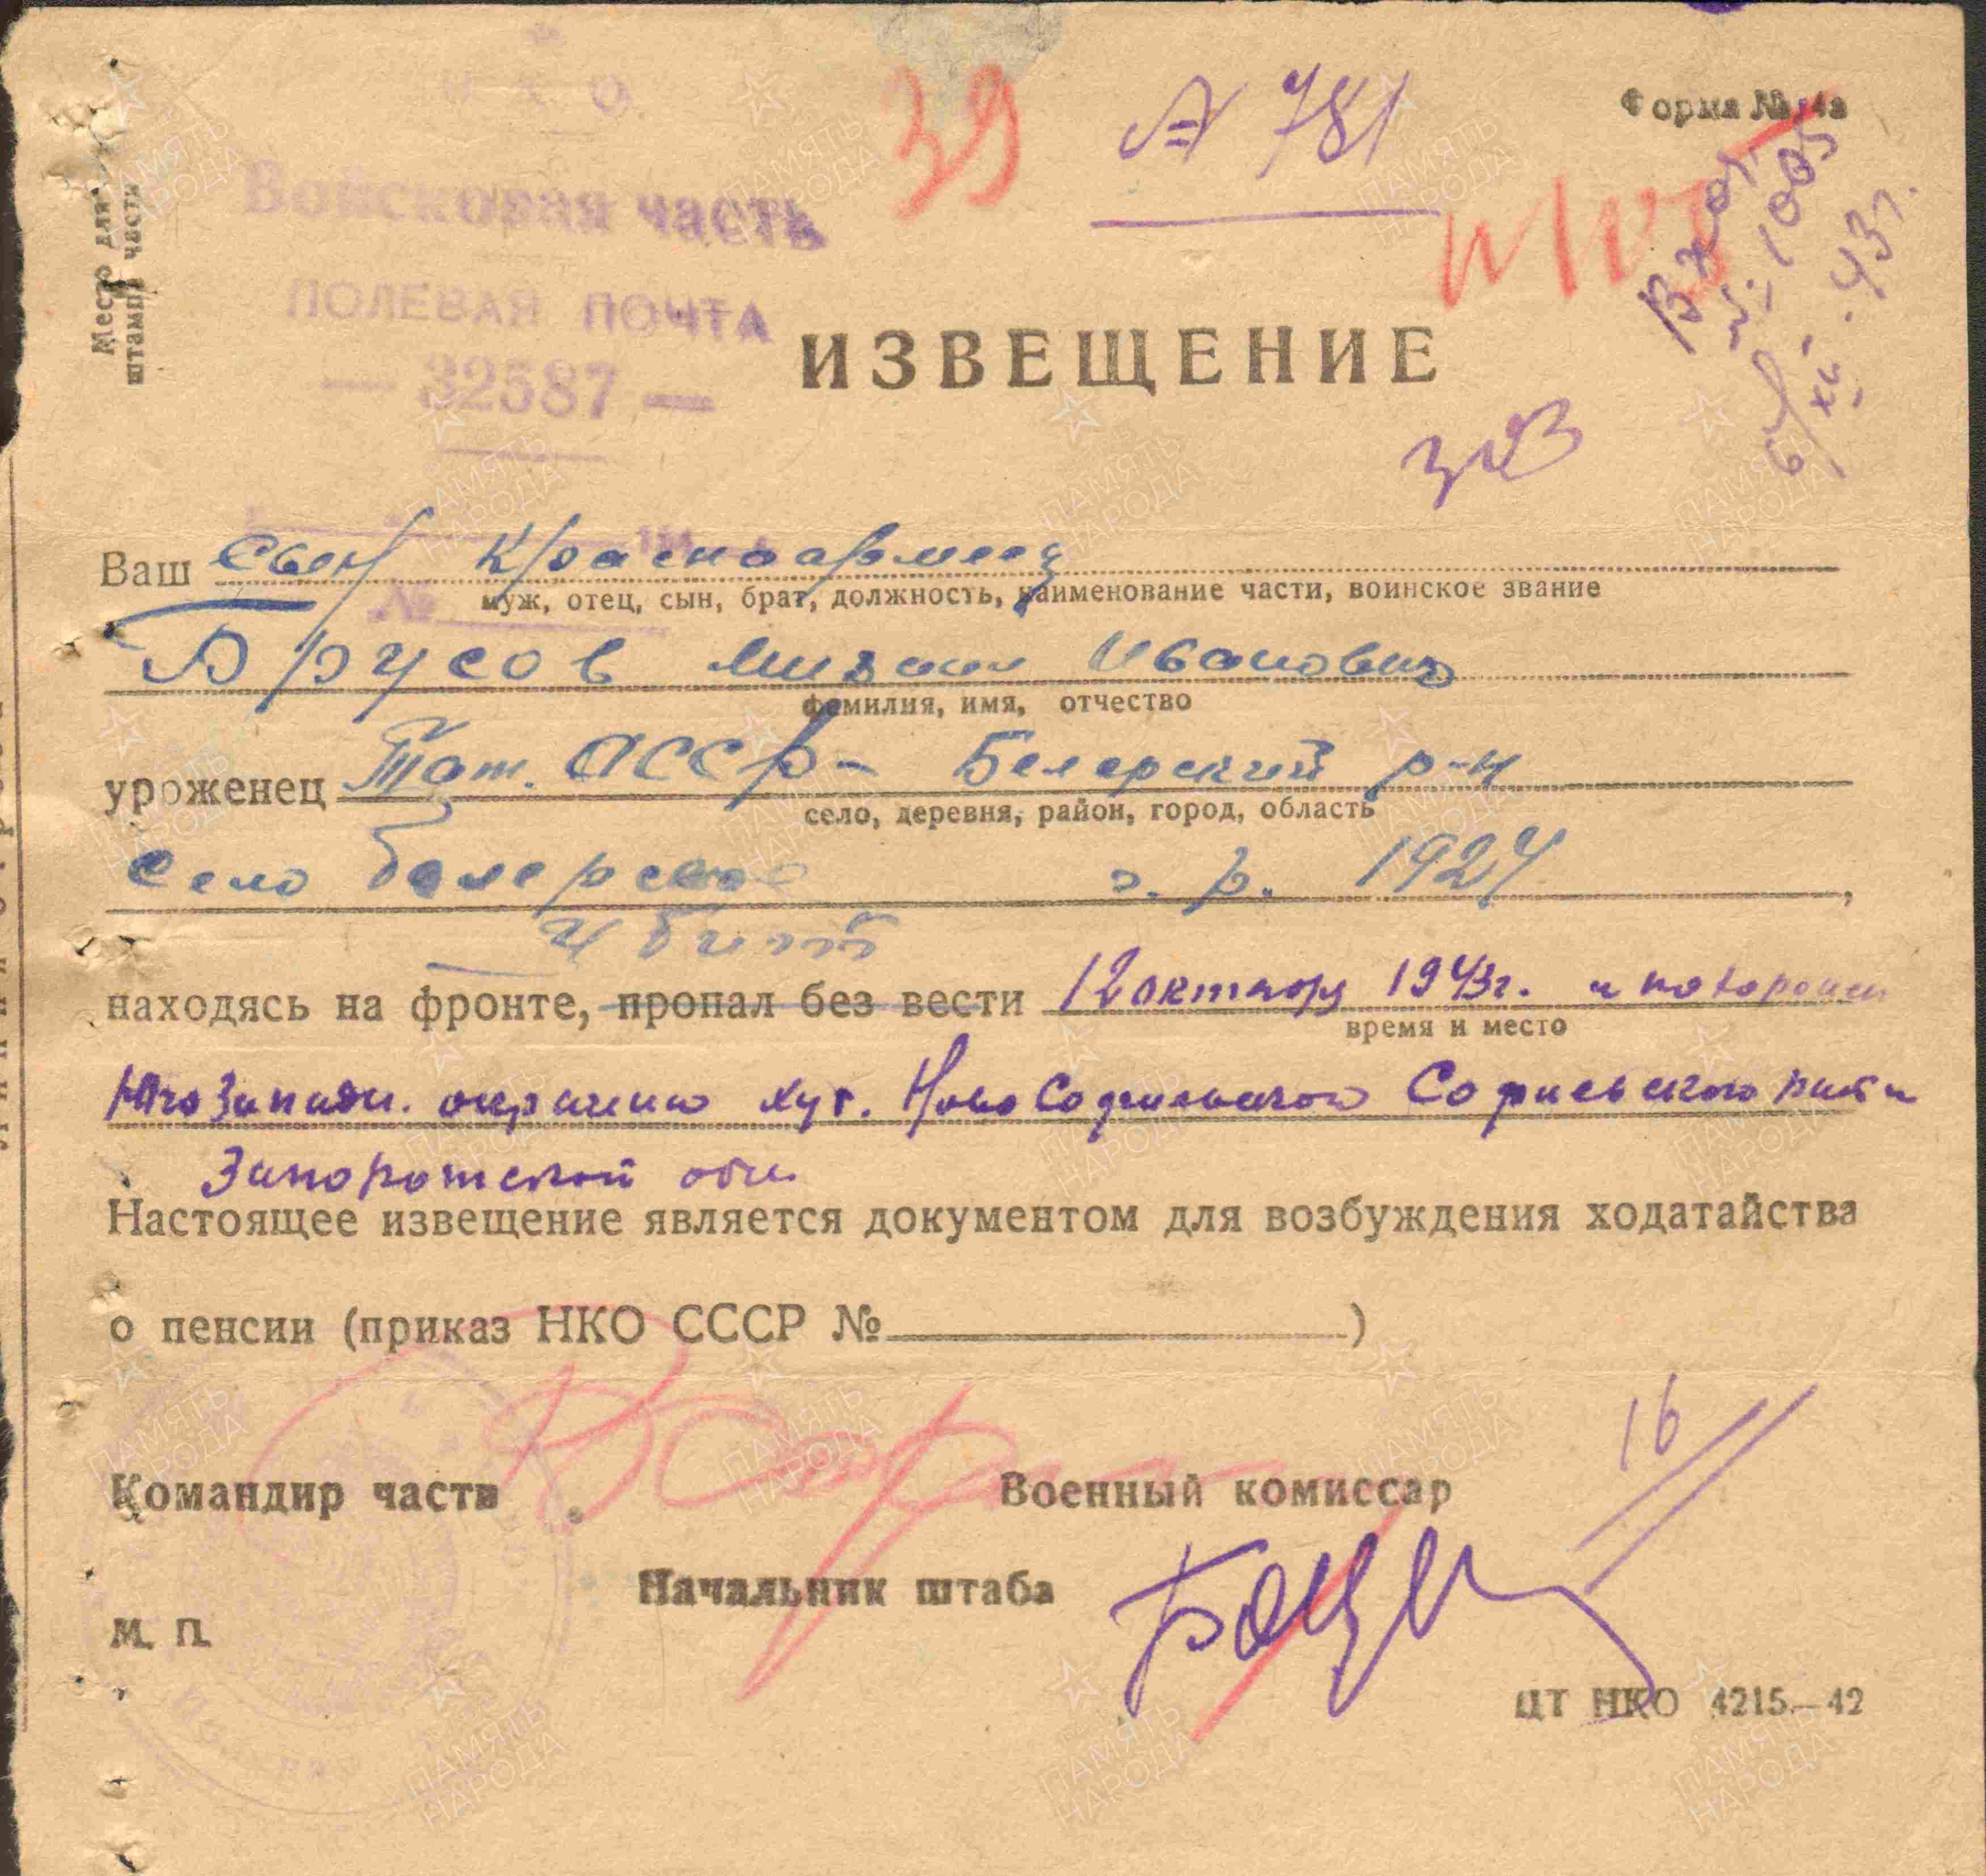 Форма № 4а
39
№ 781
Вход.
№ 1005
6/XII.-43г.
Место для
штампа части
Войсковая часть
ПОЛЕВАЯ ПОЧТА
— 32587 —
ИЗВЕЩЕНИЕ
Ваш сын красноармеец
муж, отец, сын, брат, должность, наименование части, воинское звание
Брусов Михаил Иванович
фамилия, имя, отчество
уроженец Тат. АССР- Белярский р-н
село, деревня, район, город, область
село Белярское г. р. 1924,
убит
находясь на фронте, пропал без вести 12 октября 1943г. и похоронен
время и место
Югозападн. окраина хут. Ново Софиевского Софиевского района
Запорожской обл.
Настоящее извещение является документом для возбуждения ходатайства
о пенсии (приказ НКО СССР № )
Командир части Военный комиссар
16
Начальник штаба
М. П.
ЦТ НКО 4215—42
ПАМЯТЬ
НАРОДА